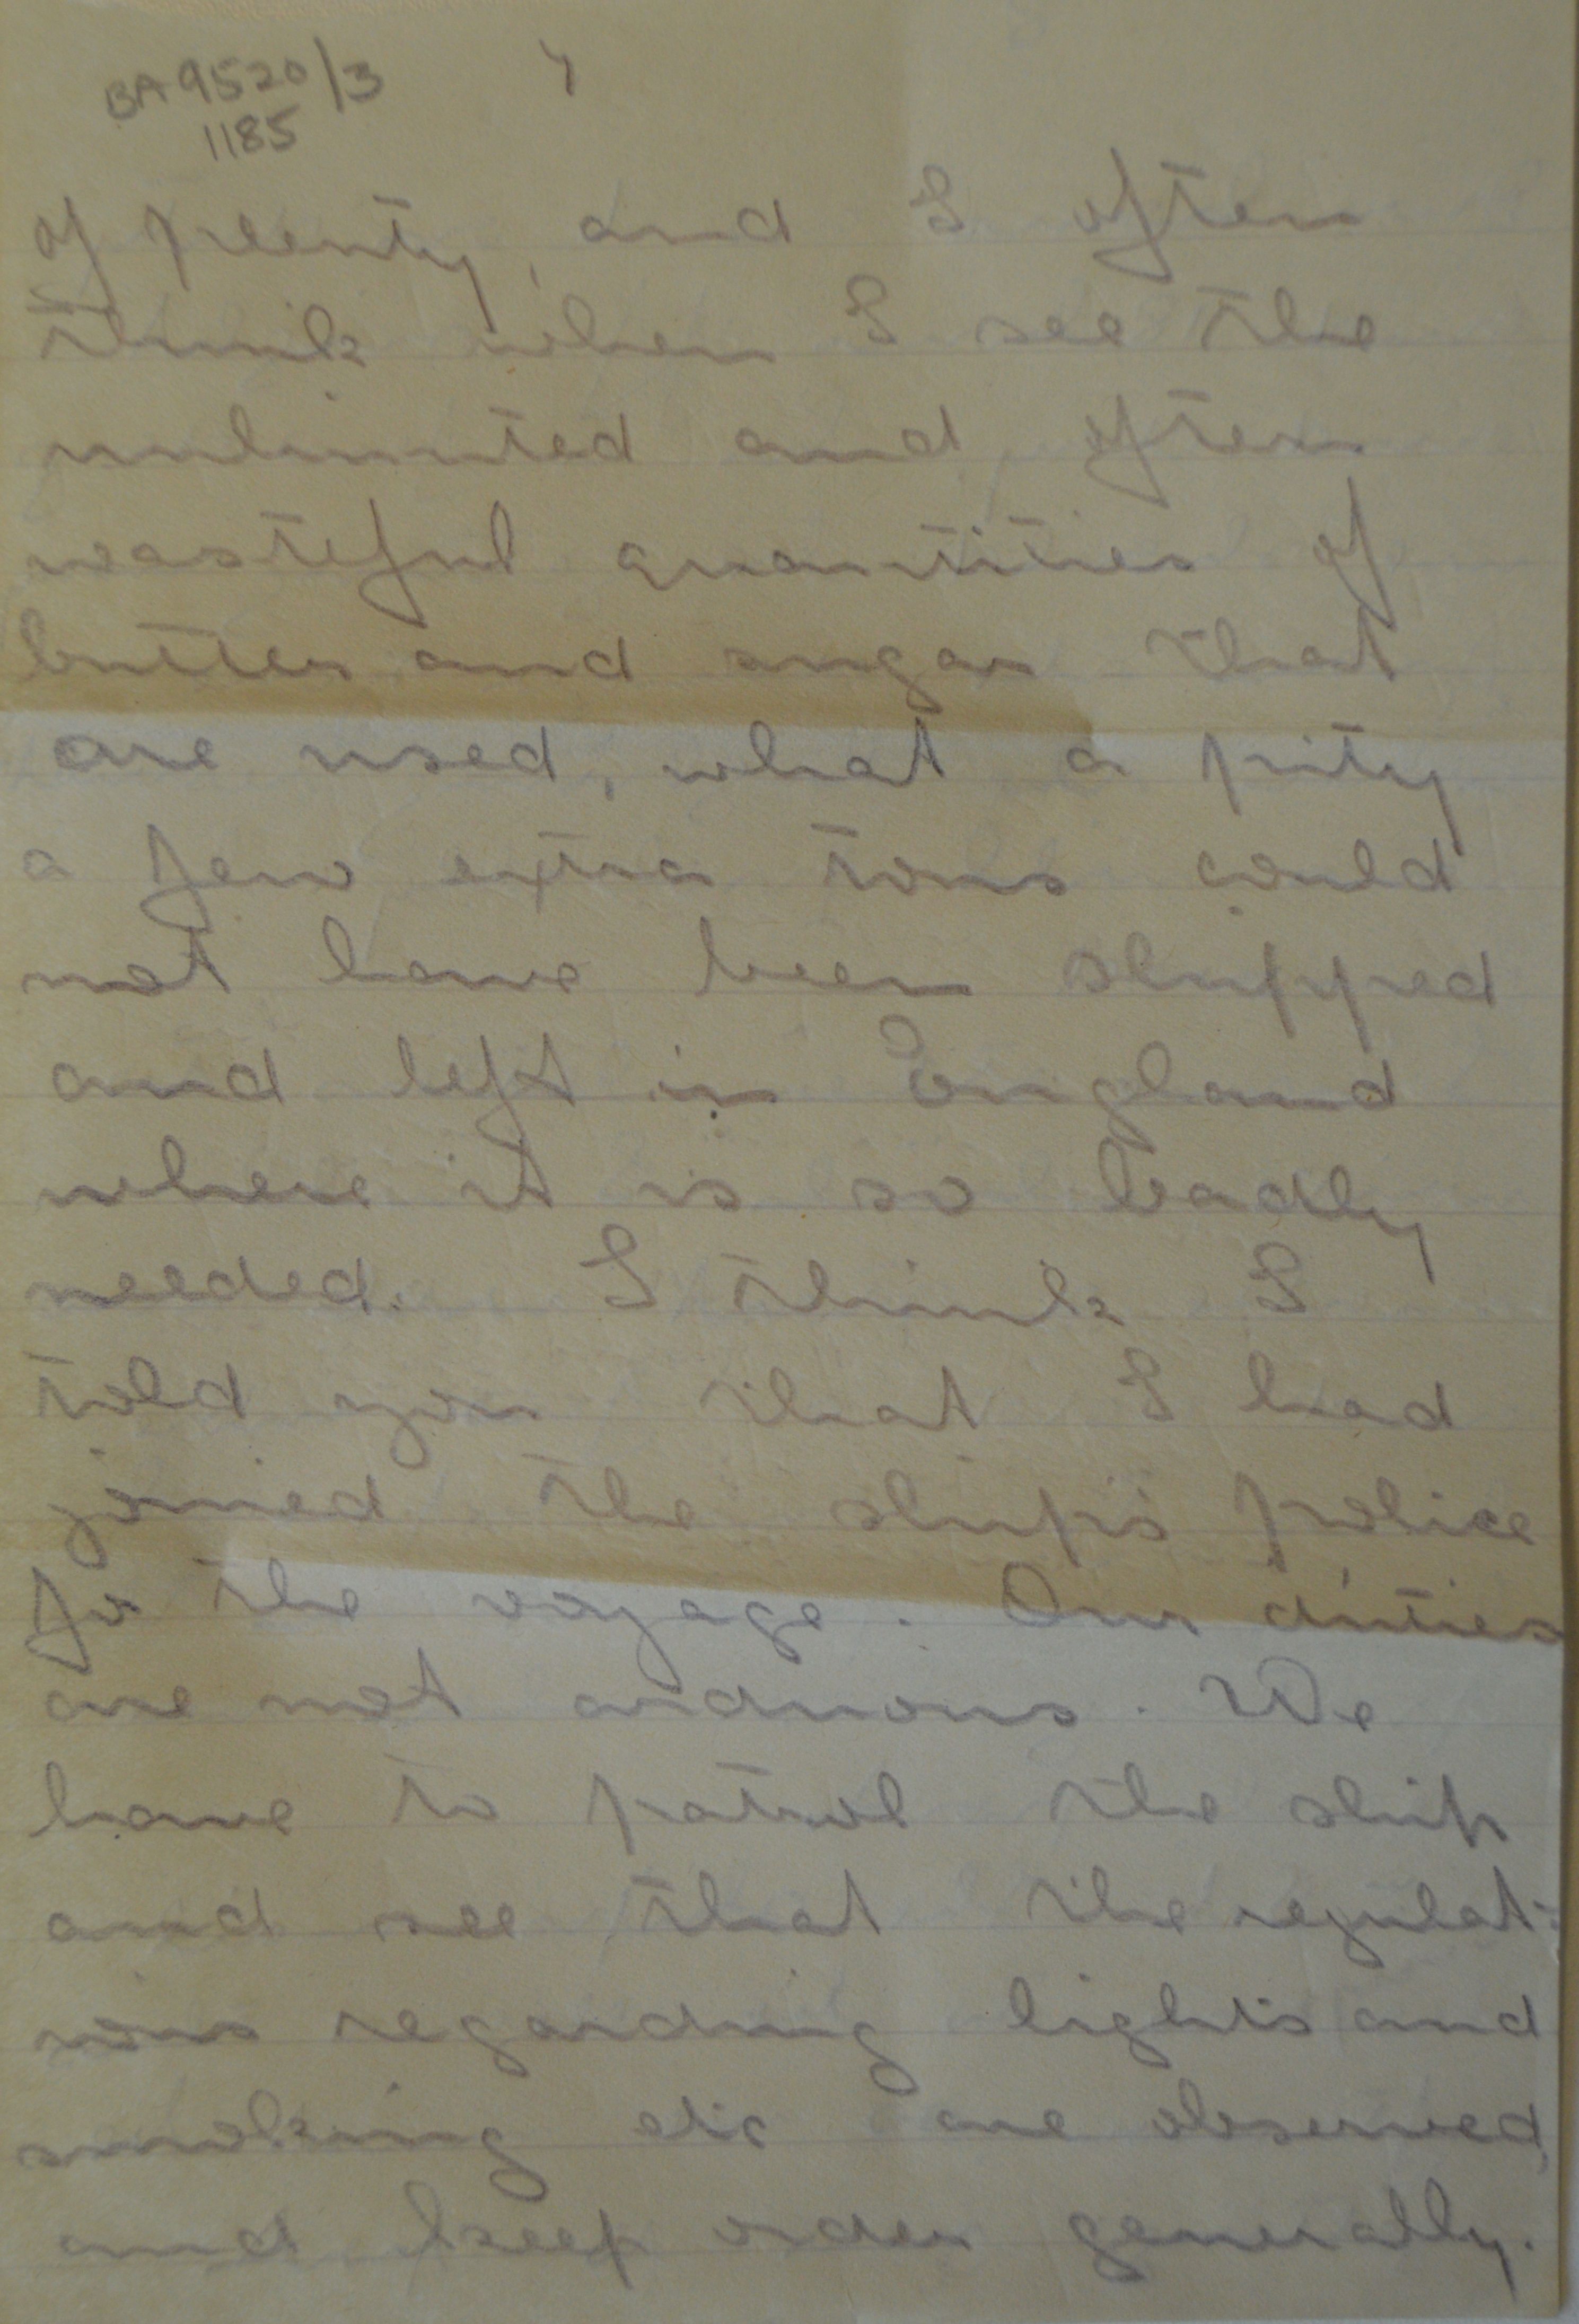 BA 9520/3
1185
of plenty, and I often
think when I see the
unlimited and often
wasteful quantities of
butter and sugar that
are used, what a pity
a few extra tons could
not have been shipped
and left in England
where it is so badly
needed. I think I
told you that I had
joined the ship's police
for the voyage. Our duties
are not arduous. We
have to patrol the ship
and see that the regulat-
ions regarding lights and
smoking etc are observed,
and keep order generally.